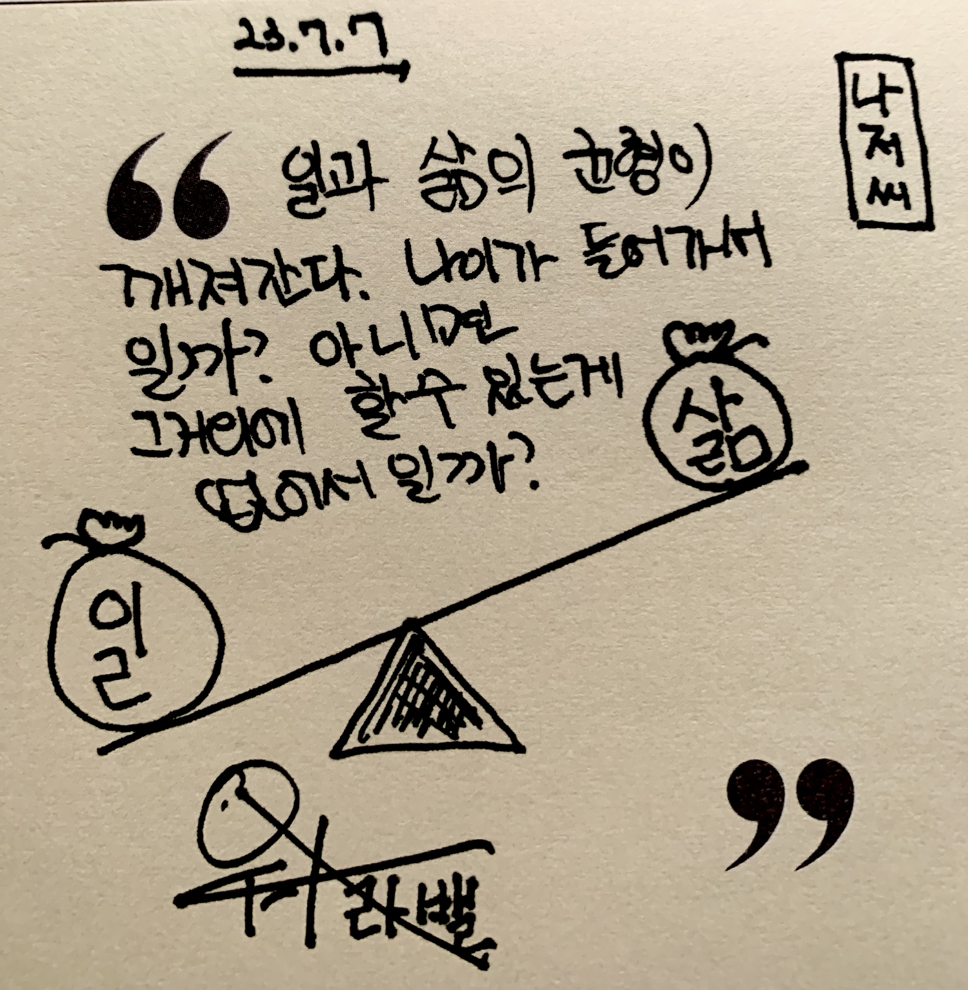 23.7.7
나저씨
“ 일과 삶의 균형이
깨져간다. 나이가 들어가서
일까? 아니면
그거밖에 할수 있는게
없어서 일까?
삶
일
워라밸
”